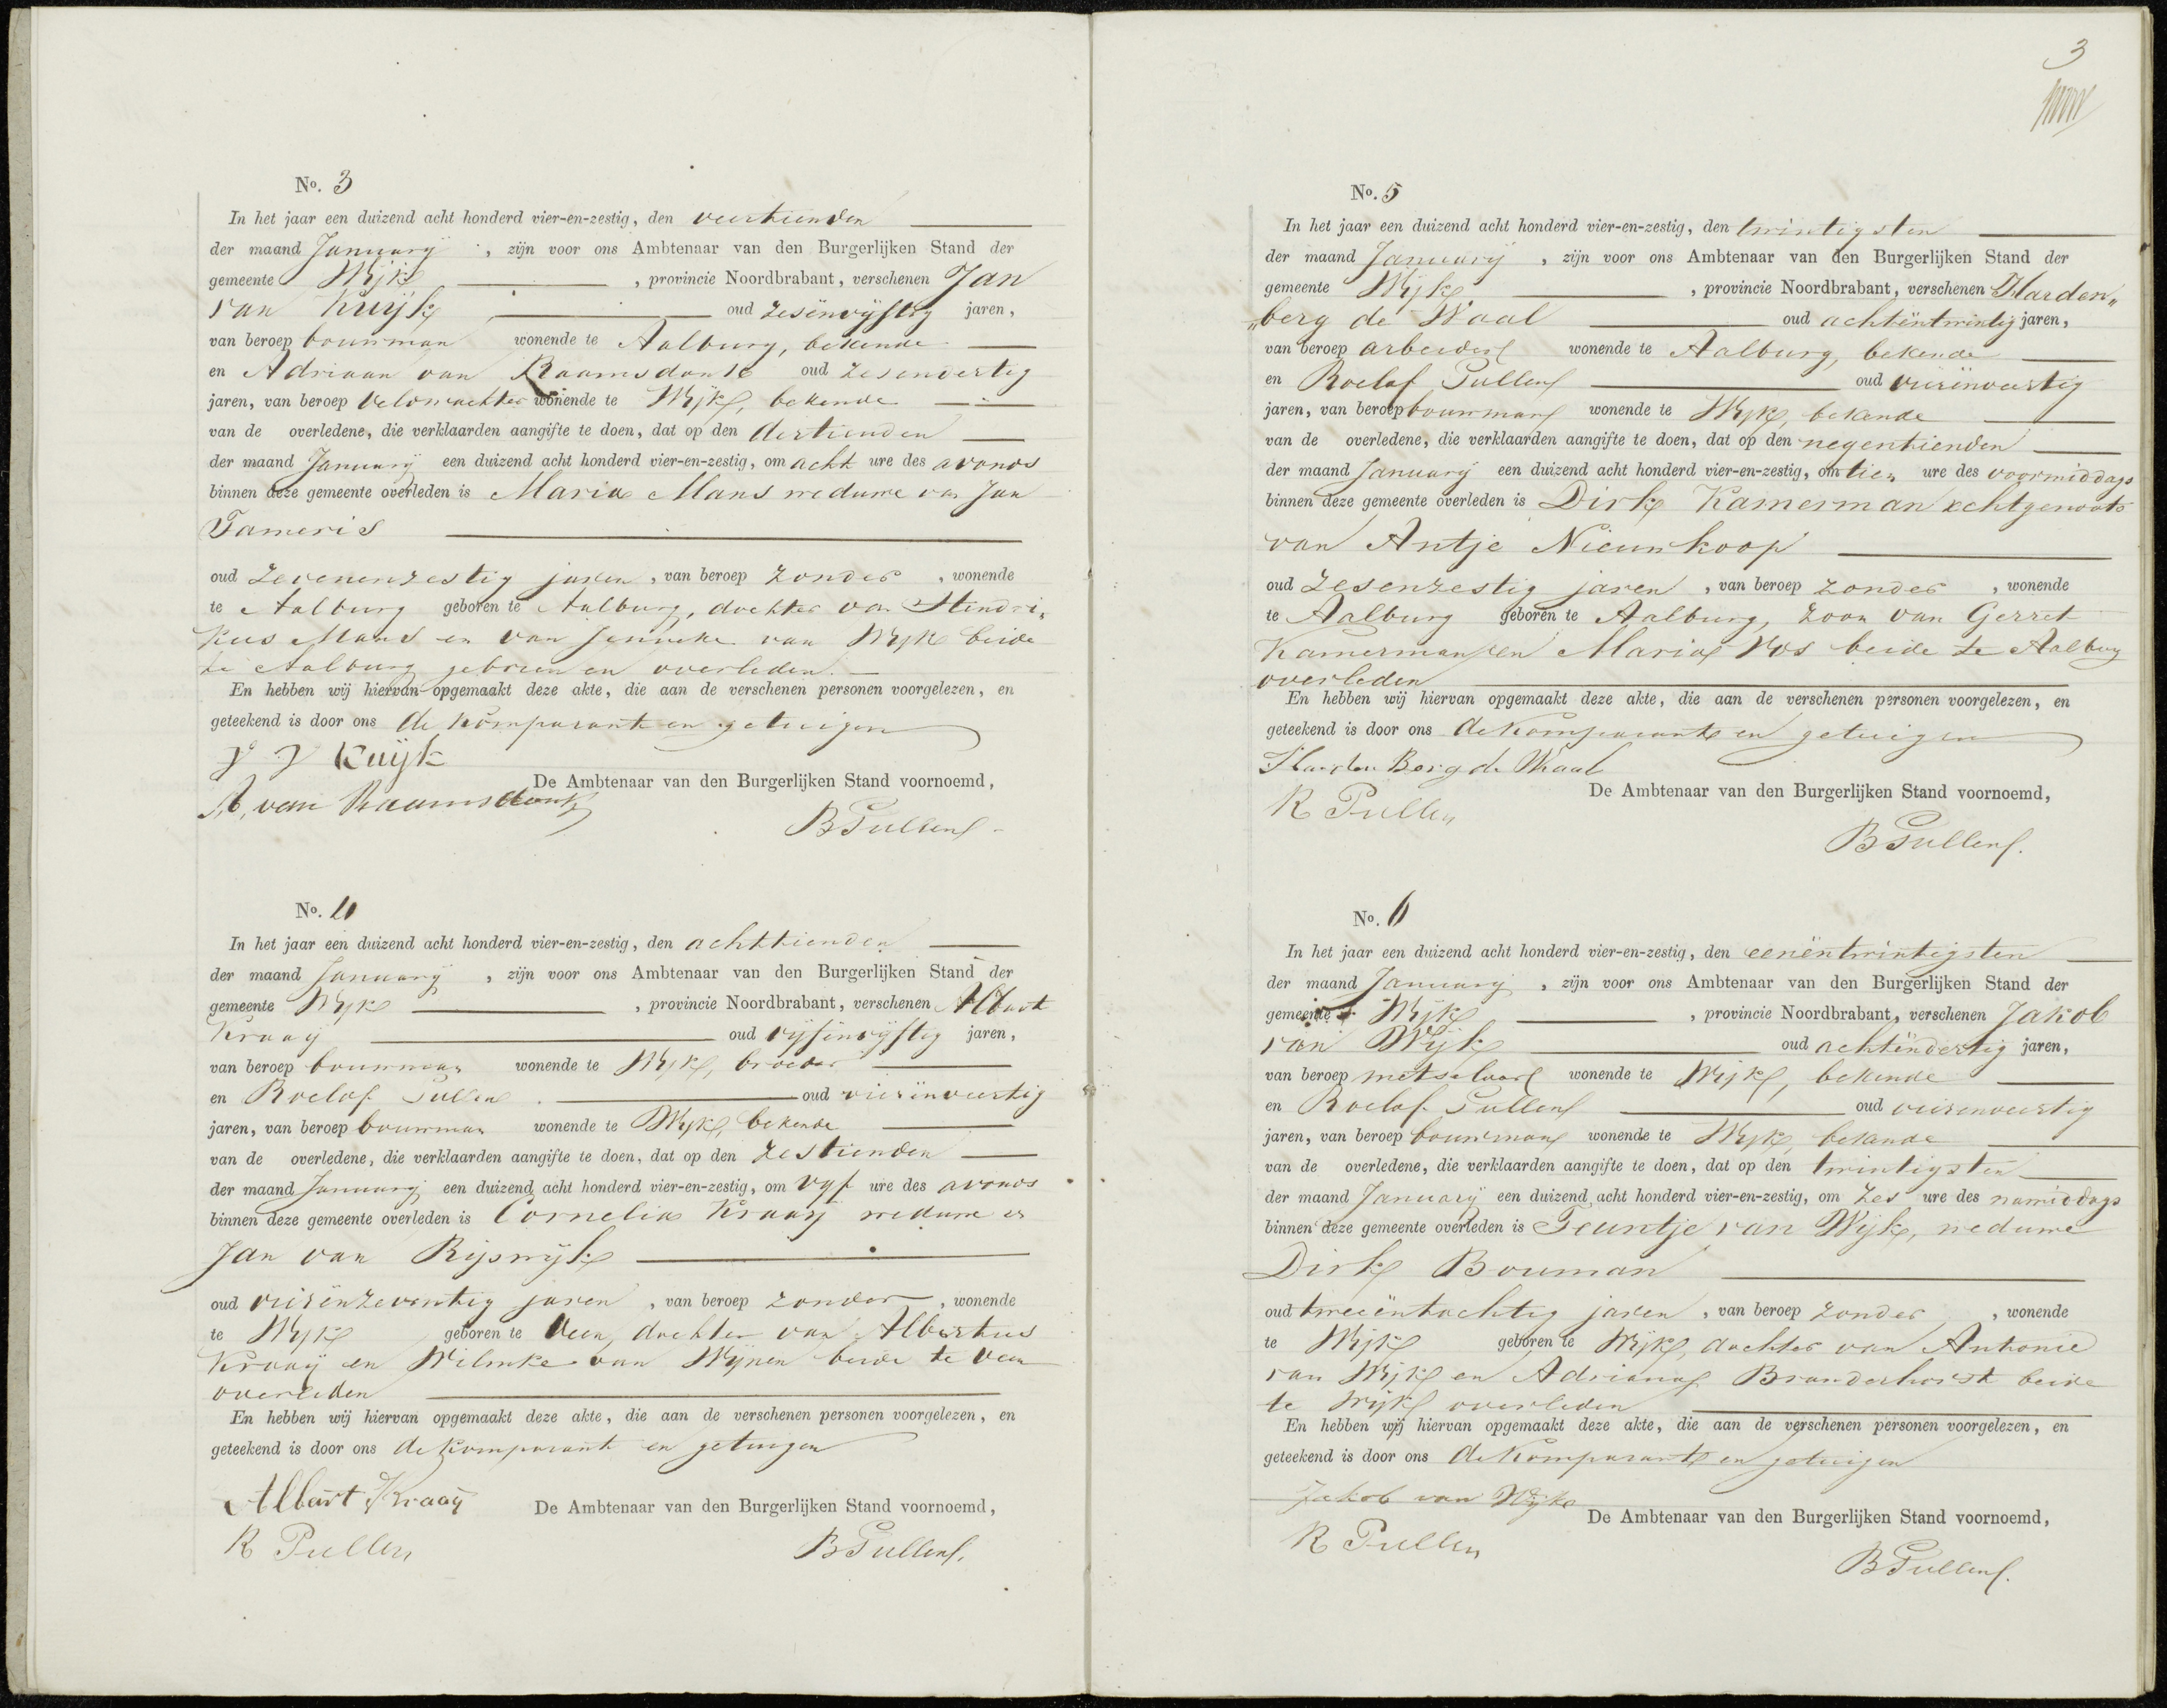 No. 3
In het jaar een duizend acht honderd vier-en-zestig, den veertienden
der maand Januarij, zijn voor ons Ambtenaar van den Burgerlijken Stand der
gemeente Wijk, provincie Noordbrabant, verschenen Jan
van Kuijk oud zesënvijftig jaren,
van beroep bouwman wonende te Aalburg, bekende
en Adriaan van Raamsdonk oud zesendertig
jaren, van beroep veldwachter wonende te Wijk, bekende
van de overledene, die verklaarden aangifte te doen, dat op den dertienden
der maand Januarij een duizend acht honderd vier-en-zestig, om acht ure des avonds
binnen deze gemeente overleden is Maria Mans weduwe van Jan
Tameris
oud zevenenzestig jaren, van beroep zonder, wonende
te Aalburg geboren te Aalburg, dochter van Hendri,
kus Mans en van Jenneke van Wijk beide
te Aalburg geboren en overleden.
En hebben wij hiervan opgemaakt deze akte, die aan de verschenen personen voorgelezen, en
geteekend is door ons de komparant en getuigen
J J Kuijk
De Ambtenaar van den Burgerlijken Stand voornoemd,
A, van Raamsdonk
B Pullen
No. 4
In het jaar een duizend acht honderd vier-en-zestig, den achttienden
der maand Januarij, zijn voor ons Ambtenaar van den Burgerlijken Stand der
gemeente Wijk, provincie Noordbrabant, verschenen Albert
Kraaij oud vijfënvijftig jaren,
van beroep bouwman wonende te Wijk, broeder
en Roelof Pullen oud vierënveertig
jaren, van beroep bouwman wonende te Wijk, bekende
van de overledene, die verklaarden aangifte te doen, dat op den zestienden
der maand Januarij een duizend acht honderd vier-en-zestig, om vyf ure des avonds
binnen deze gemeente overleden is Cornelia Kraaij weduwe
Jan van Rijswijk
oud vierënzeventig jaren, van beroep zonder, wonende
te Wijk geboren te Veen, dochter van Albertus
Kraaij en Wilmke van Wijnen beide te Veen
overleden
En hebben wij hiervan opgemaakt deze akte, die aan de verschenen personen voorgelezen, en
geteekend is door ons de komparant en getuigen
Albert Kraaij
De Ambtenaar van den Burgerlijken Stand voornoemd,
R Pullen
B Pullen.
3
No. 5
In het jaar een duizend acht honderd vier-en-zestig, den twintigsten
der maand Januarij, zijn voor ons Ambtenaar van den Burgerlijken Stand der
gemeente Wijk, provincie Noordbrabant, verschenen Harden„
„berg de Waal oud achtëntwintig jaren,
van beroep arbeider wonende te Aalburg, bekende
en Roelof Pullen oud vierënveertig
jaren, van beroep bouwman wonende te Wijk, bekende
van de overledene, die verklaarden aangifte te doen, dat op den negentienden
der maand Januarij een duizend acht honderd vier-en-zestig, om tien ure des voormiddags
binnen deze gemeente overleden is Dirk Kamerman echtgenoot
van Antje Nieuwkoop
oud zesenzestig jaren, van beroep zonder, wonende
te Aalburg geboren te Aalburg, zoon van Gerret
Kamerman en Maria Vos beide te Aalburg
overleden
En hebben wij hiervan opgemaakt deze akte, die aan de verschenen personen voorgelezen, en
geteekend is door ons de komparant en getuigen
Harden Berg de Waal
De Ambtenaar van den Burgerlijken Stand voornoemd,
R Pullen
B Pullen.
No. 6
In het jaar een duizend acht honderd vier-en-zestig, den eenëntwintigsten
der maand Januarij, zijn voor ons Ambtenaar van den Burgerlijken Stand der
gemeente Wijk, provincie Noordbrabant, verschenen Jakob
van Wijk oud achtëndertig jaren,
van beroep metselaar wonende te Wijk, bekende
en Roelof Pullen oud vierenveertig
jaren, van beroep bouwman wonende te Wijk, bekende
van de overledene, die verklaarden aangifte te doen, dat op den twintigsten
der maand Januarij een duizend acht honderd vier-en-zestig, om zes ure des namiddags
binnen deze gemeente overleden is Teuntje van Wijk, weduwe
Dirk Bouman
oud tweeëntachtig jaren, van beroep zonder, wonende
te Wijk geboren te Wijk, dochter van Antonie
van Wijk en Adriana Branderhorst beide
te Wijk overleden
En hebben wij hiervan opgemaakt deze akte, die aan de verschenen personen voorgelezen, en
geteekend is door ons de komparant en getuigen
Jakob van Wijk
De Ambtenaar van den Burgerlijken Stand voornoemd,
R Pullen
B Pullen.